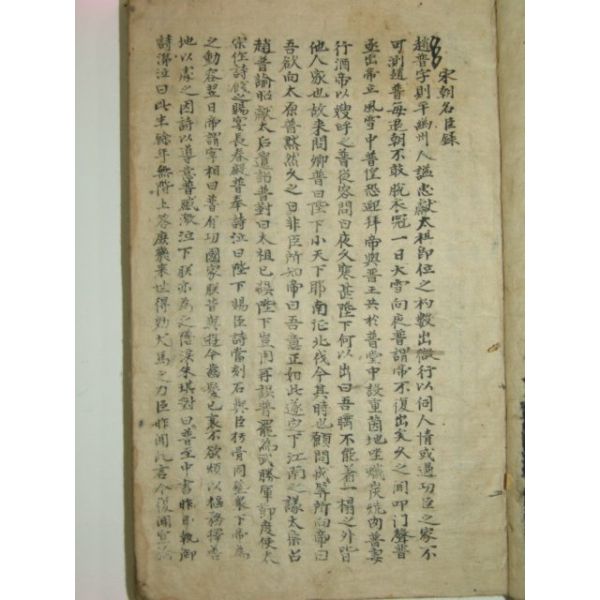 宋朝名臣錄
趙普字則平幽州人諡忠獻太祖即位之初數出微行以伺人情或過功臣之家不
可測趙普每退朝不敢脫衣冠一日大雪向夜普謂帝不復出矣久之聞叩门聲普
亟出帝立風雪中普惶恐迎拜帝與晋王共於普堂中設重茵地坐熾炭燒肉普妻
行酒帝以嫂呼之普從容問曰夜久寒甚陛下何以出曰吾睡不能著一榻之外皆
他人家也故来間卿普曰陛下小天下耶南征北伐今其時也願問成筭所向帝曰
吾欲向太原普黙然久之曰非臣所知帝曰吾意正如此遂定下江南之議太宗占
趙普諭昭獻太后遺詔普對曰太祖已誤陛下豈用再誤普罷為武勝軍節度使太
宗作詩餞之賜宴長春殿普奉詩泣曰陛下賜臣詩當刻石與臣朽骨同葬泉下帝為
之動容翌日帝謂宰相曰普有功國家朕昔與遊今齒髮已衰不欲煩以樞務擇善
地以處之因詩以導意普感激泣下朕亦為之堕淚宋琪對曰普至中書昨日執御
詩涕泣曰此生餘年無階上荅庶幾来世得効犬馬之力臣昨聞此言今復聞宣諭